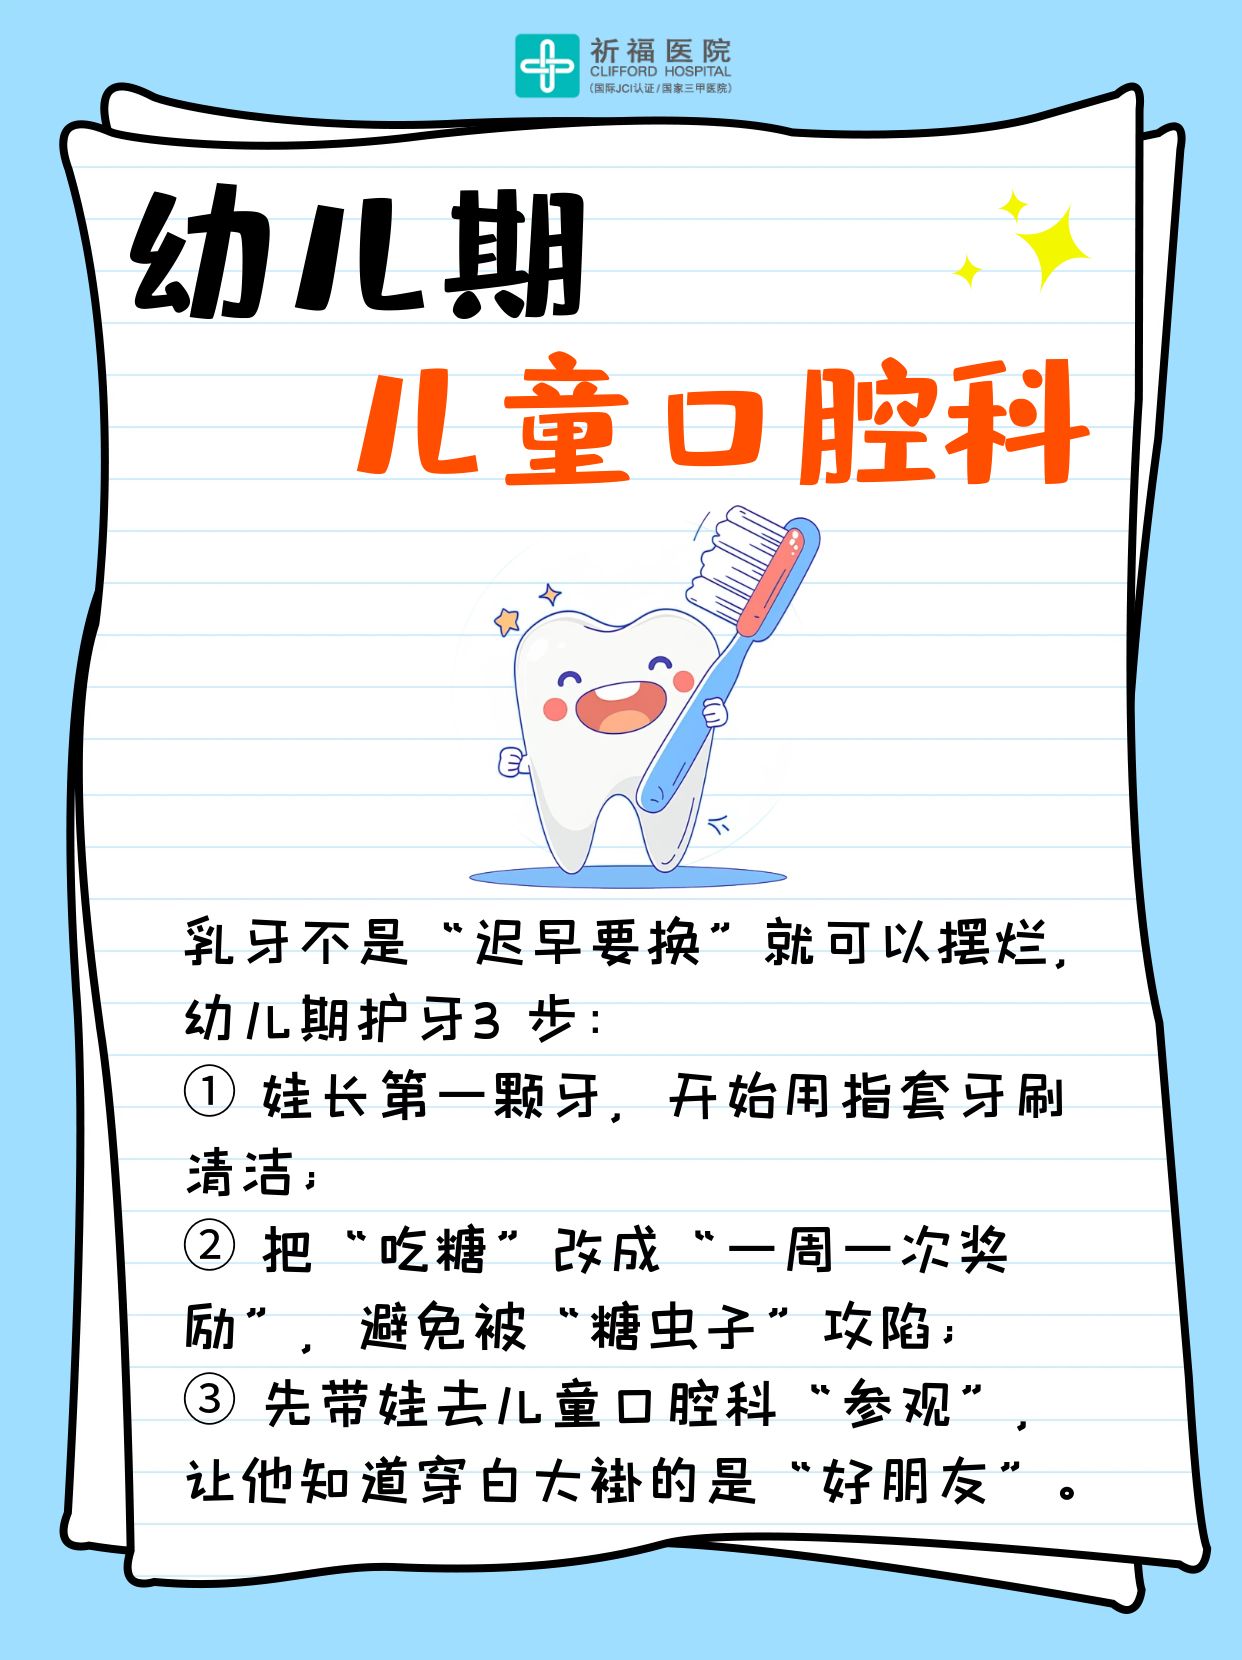 祈福医院
CLIFFORD HOSPITAL
(国际JCI认证/国家三甲医院)
幼儿期
儿童口腔科
乳牙不是“迟早要换”就可以摆烂,
幼儿期护牙3 步:
① 娃长第一颗牙, 开始用指套牙刷
清洁;
② 把“吃糖”改成“一周一次奖
励”, 避免被“糖虫子”攻陷;
③ 先带娃去儿童口腔科“参观”,
让他知道穿白大褂的是“好朋友”。